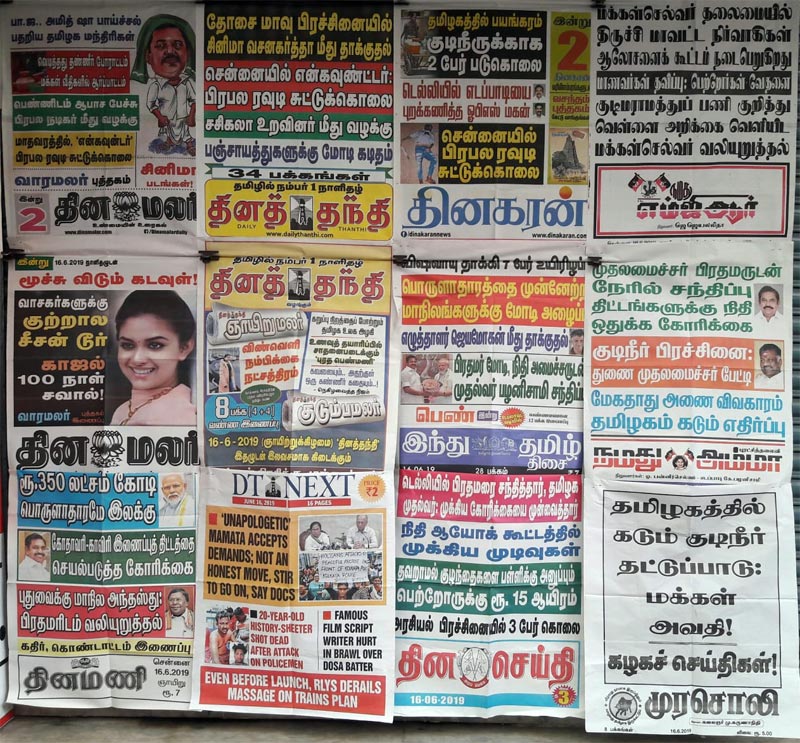 பா.ஜ., அமித் ஷா பாய்ச்சல்
பதறிய தமிழக மந்திரிகள்
வெடித்தது தண்ணீர் போராட்டம்
மக்கள் வீதிகளில் ஆர்ப்பாட்டம்
பெண்ணிடம் ஆபாச பேச்சு
பிரபல நடிகர் மீது வழக்கு
மாதவரத்தில், 'என்கவுன்டர்'
பிரபல ரவுடி சுட்டுக்கொலை
வாரமலர் புத்தகம்
சினிமா
படங்கள்!
இன்று
2
தின மலர்
உண்மையின் உரைகல்
www.dinamalar.com
தோசை மாவு பிரச்சினையில்
சினிமா வசனகர்த்தா மீது தாக்குதல்
சென்னையில் என்கவுண்ட்டர்:
பிரபல ரவுடி சுட்டுக்கொலை
சசிகலா உறவினர் மீது வழக்கு
பஞ்சாயத்துகளுக்கு மோடி கடிதம்
34 பக்கங்கள்
தமிழில் நம்பர் 1 நாளிதழ்
தினத் தந்தி
DAILY THANTHI
www.dailythanthi.com
தமிழகத்தில் பயங்கரம்
குடிநீருக்காக
2 பேர் படுகொலை
இன்று
2
டெல்லியில் எடப்பாடியை
புறக்கணித்த ஓபிஎஸ் மகன்
வசந்தம்
புத்தகம்
சென்னையில்
பிரபல ரவுடி
சுட்டுக்கொலை
தினகரன்
/dinakarannews
www.dinakaran.com
மக்கள்செல்வர் தலைமையில்
திருச்சி மாவட்ட நிர்வாகிகள்
ஆலோசனைக் கூட்டம் நடைபெறுகிறது
மாணவர்கள் தவிப்பு; பெற்றோர்கள் வேதனை
குடிமராமத்துப் பணி குறித்து
வெள்ளை அறிக்கை வெளியிட
மக்கள்செல்வர் வலியுறுத்தல்
நமது
எம்ஜிஆர்
இன்று
16.6.2019 ஞாயிறு
மூச்சு விடும் கடவுள்!
வாசகர்களுக்கு
குற்றால
சீசன் டூர்
காஜல்
100 நாள்
சவால்!
வாரமலர் புத்தகம்
இணைப்பு
தின மலர்
தமிழில் நம்பர் 1 நாளிதழ்
தினத் தந்தி
வழங்கும்
ஞாயிறுமலர்
விண்வெளி
நம்பிக்கை
நட்சத்திரம்
கறுப்பு நிறத்தைப் போற்றும்
தமிழக உலக அழகி
உணவு தயாரிப்பில்
சாதனைபடைக்கும்
'புதுமை பெண்மணி'
8 பக்க 4+4
வண்ண இணைப்பு!
குடும்பமலர்
16-6-2019 (ஞாயிற்றுக்கிழமை) 'தினத்தந்தி'
இதழுடன் இலவசமாக கிடைக்கும்
விஷவாயு தாக்கி 7 பேர் உயிரிழப்பு
பொருளாதாரத்தை முன்னேற்ற
மாநிலங்களுக்கு மோடி அழைப்பு
எழுத்தாளர் ஜெயமோகன் மீது தாக்குதல்
பிரதமர் மோடி, நிதி அமைச்சருடன்
முதல்வர் பழனிசாமி சந்திப்பு
பெண் இன்று
இந்து தமிழ்
திசை
28 பக்கம்
முதலமைச்சர் பிரதமருடன்
நேரில் சந்திப்பு
திட்டங்களுக்கு நிதி
ஒதுக்க கோரிக்கை
குடிநீர் பிரச்சினை:
துணை முதலமைச்சர் பேட்டி
மேகதாது அணை விவகாரம்
தமிழகம் கடும் எதிர்ப்பு
புரட்சித்தலைவி
நமது அம்மா
ரூ.350 லட்சம் கோடி
பொருளாதாரமே இலக்கு
கோதாவரி-காவிரி இணைப்புத் திட்டத்தை
செயல்படுத்த கோரிக்கை
புதுவைக்கு மாநில அந்தஸ்து:
பிரதமரிடம் வலியுறுத்தல்
கதிர், கொண்டாட்டம் இணைப்பு
தினமணி
சென்னை
16.6.2019
ஞாயிறு
ரூ. 7
DT NEXT
JUNE 16, 2019
16 PAGES
PRICE
₹2
'UNAPOLOGETIC'
MAMATA ACCEPTS
DEMANDS; NOT AN
HONEST MOVE, STIR
TO GO ON, SAY DOCS
20-YEAR-OLD
HISTORY-SHEETER
SHOT DEAD
AFTER ATTACK
ON POLICEMEN
FAMOUS
FILM SCRIPT
WRITER HURT
IN BRAWL OVER
DOSA BATTER
EVEN BEFORE LAUNCH, RLYS DERAILS
MASSAGE ON TRAINS PLAN
டெல்லியில் பிரதமரை சந்தித்தார், தமிழக
முதல்வர்: முக்கிய கோரிக்கையை முன்வைத்தார்
நிதி ஆயோக் கூட்டத்தில்
முக்கிய முடிவுகள்
தவறாமல் குழந்தைகளை பள்ளிக்கு அனுப்பும்
பெற்றோருக்கு ரூ. 15 ஆயிரம்
அரசியல் பிரச்சினையில் 3 பேர் கொலை
தின செய்தி
16-06-2019
3
தமிழகத்தில்
கடும் குடிநீர்
தட்டுப்பாடு:
மக்கள்
அவதி!
கழகச் செய்திகள்!
முரசொலி
8 பக்கங்கள்
16.6.2019
விலை ரூ. 5.00